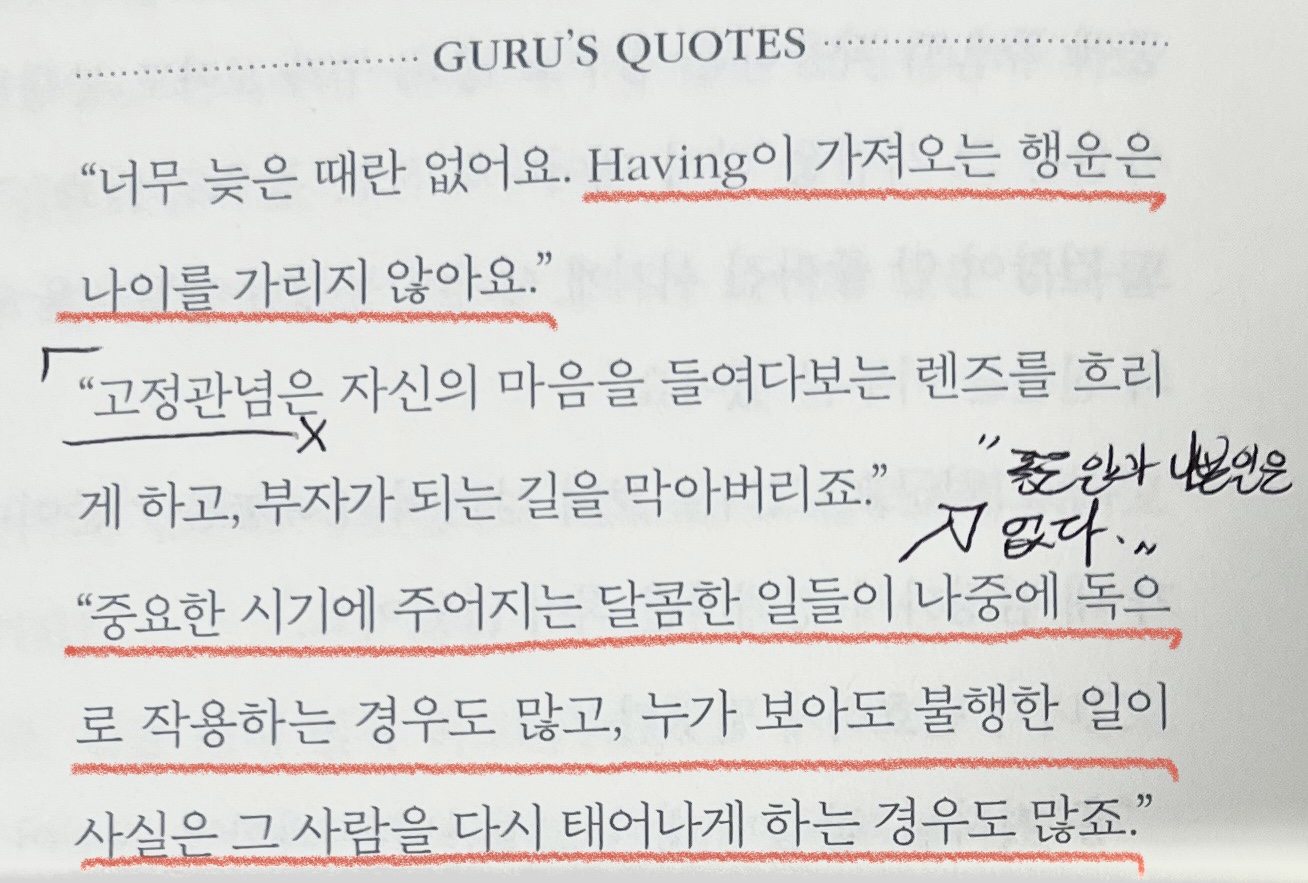 GURU'S QUOTES
“너무 늦은 때란 없어요. Having이 가져오는 행운은
나이를 가리지 않아요.”
“고정관념은 자신의 마음을 들여다보는 렌즈를 흐리
X
게 하고, 부자가 되는 길을 막아버리죠.”
"좋은 일과 나쁜일은
없다."
“중요한 시기에 주어지는 달콤한 일들이 나중에 독으
로 작용하는 경우도 많고, 누가 보아도 불행한 일이
사실은 그 사람을 다시 태어나게 하는 경우도 많죠.”